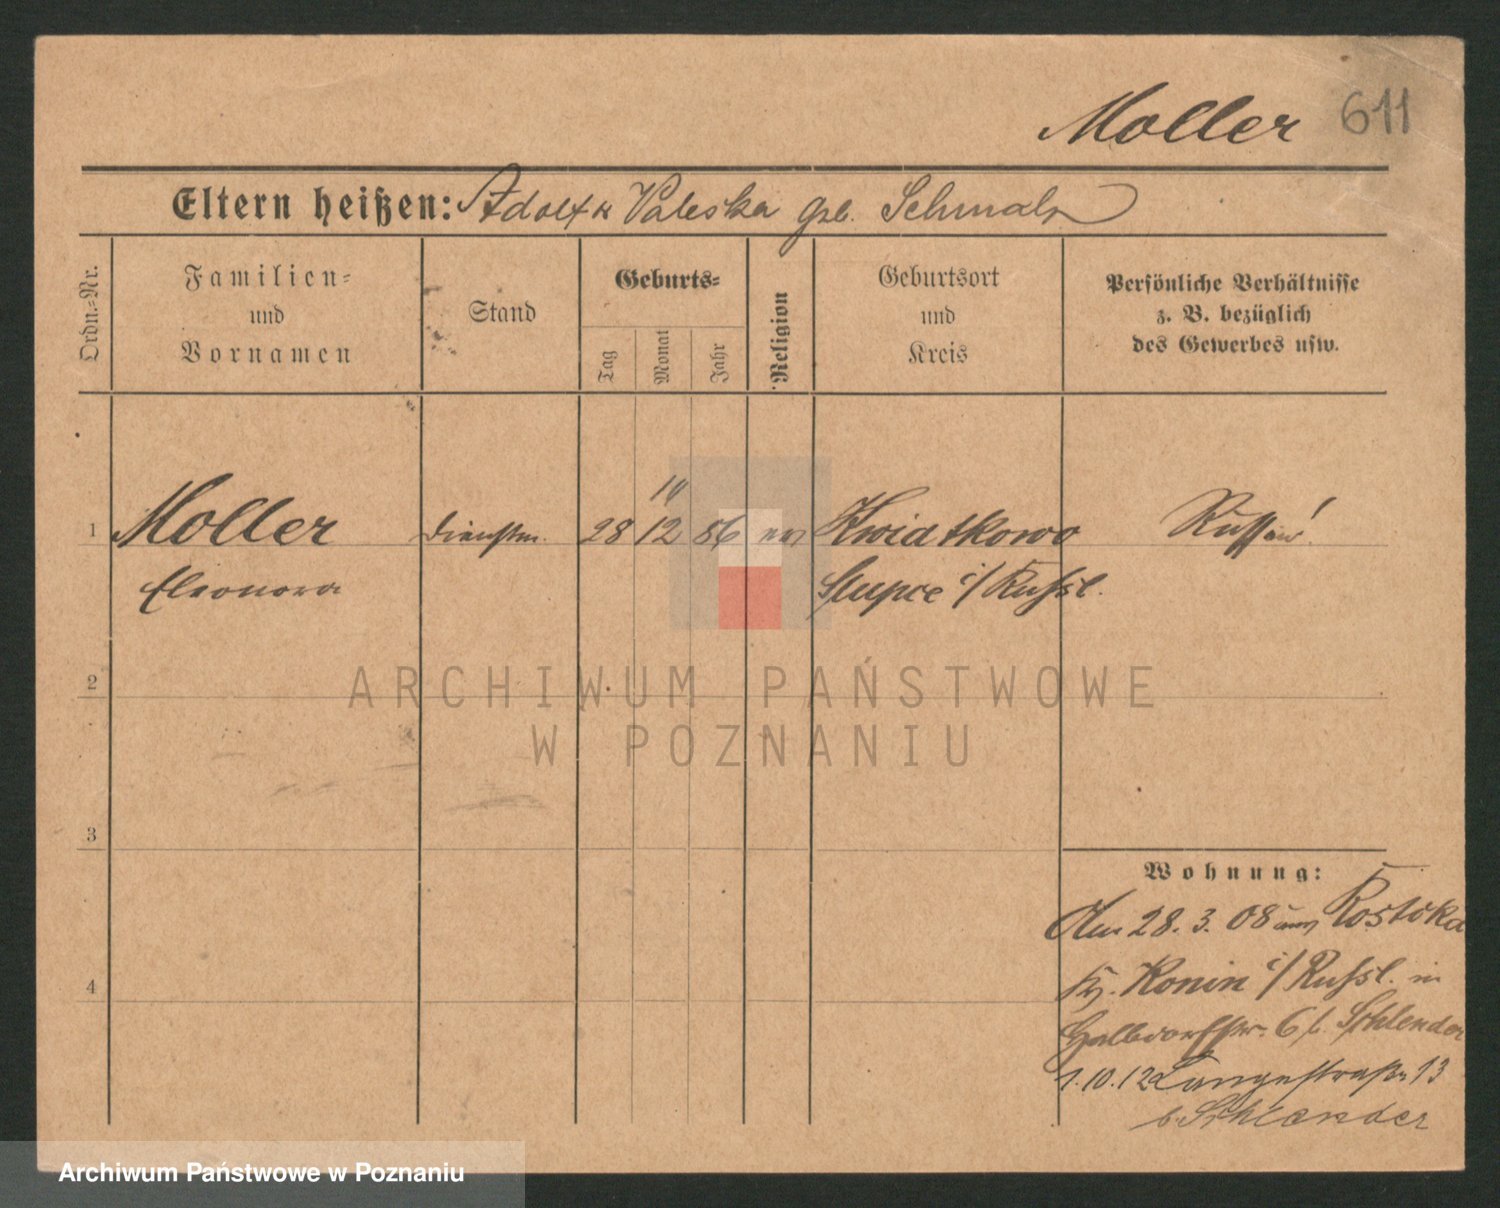 Moller 611
Eltern heißen: Adolf u Valeska geb. Schmalz
Ordn.=Nr.
Familien=
und
Vornamen
Stand
Geburts=
Tag
Monat
Jahr
Religion
Geburtsort
und
Kreis
Persönliche Verhältnisse
z. B. bezüglich
des Gewerbes usw.
14
1 Moller Dienstm. 28 12 86 ev Kwiatkowo Russin!
Eleonora Slupce i/Russl.
2
3
4
Wohnung:
Am 28. 3. 08 von Rostoka
Kr. Konin i/Russl. in
Halbdorfstr. 6 b. Schlender
1.10.12 Langestraße 13
b. Schlender
ARCHIWUM PAŃSTWOWE
W POZNANIU
Archiwum Państwowe w Poznaniu